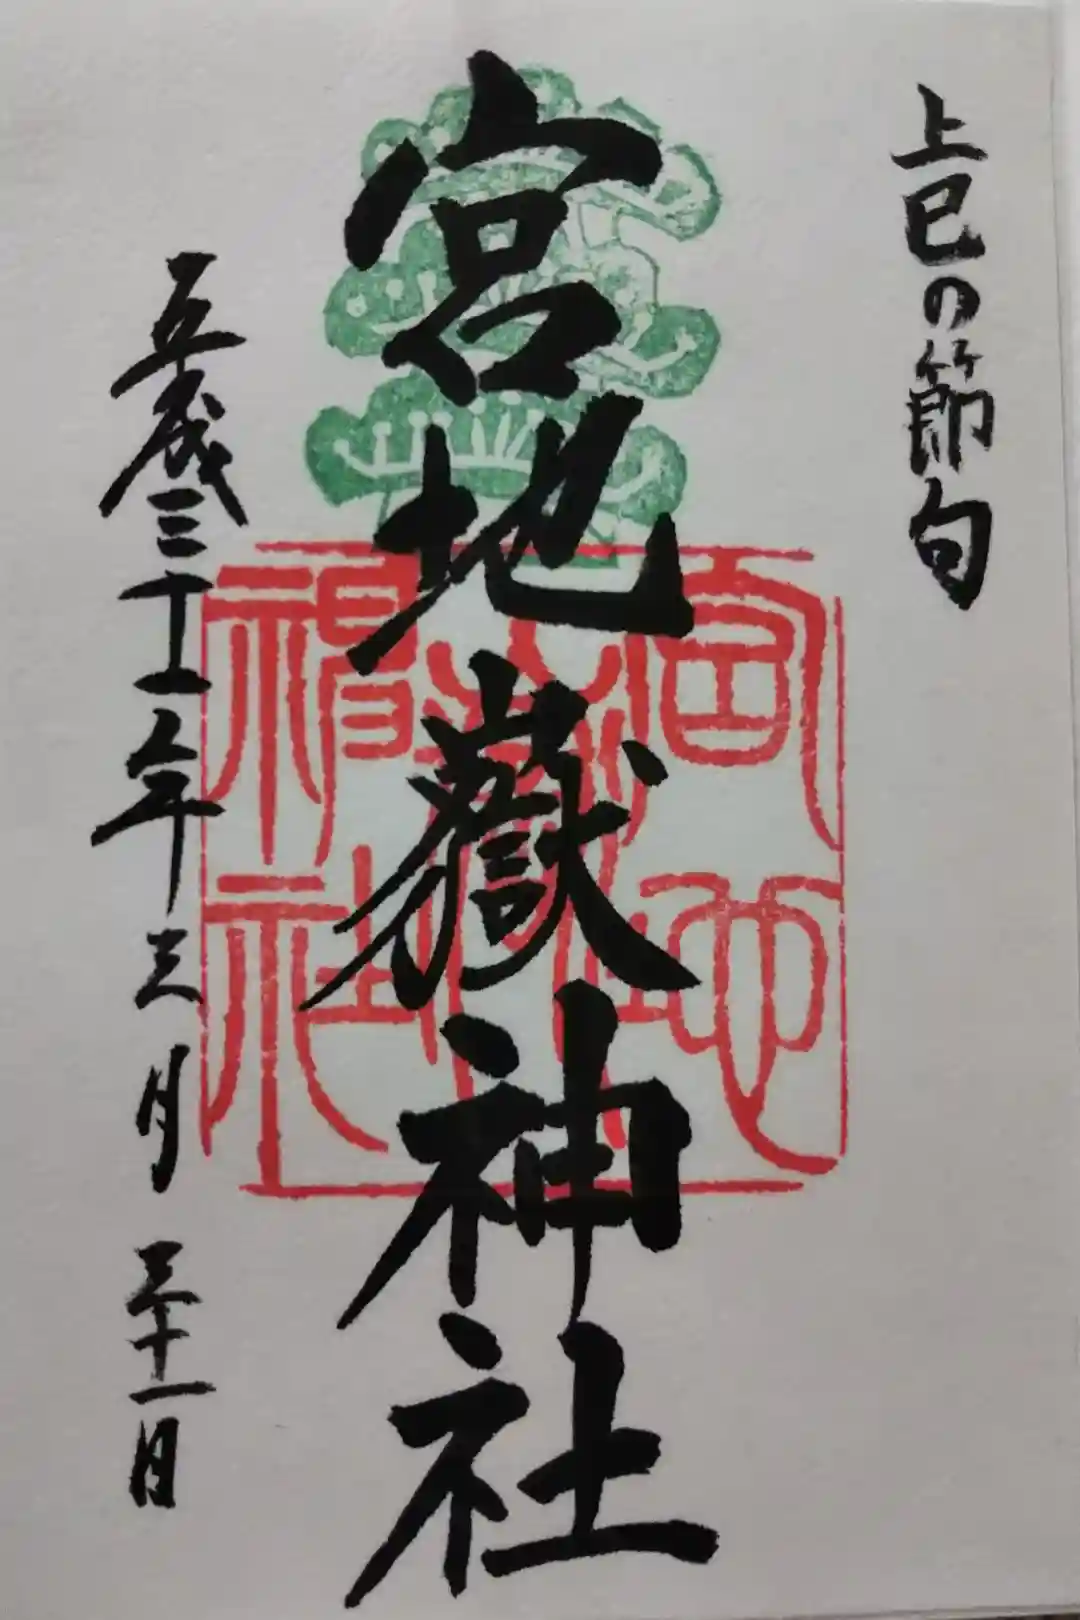 上巳の節句
宮地嶽神社
平成三十一年三月三十一日
宮地
嶽
神社